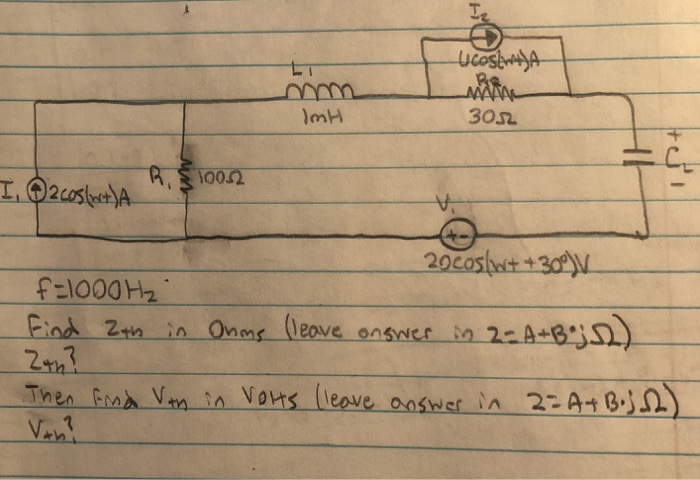 I₂
4cos(wt)A
L₁
R₂
1mH
30Ω
+
C₁
-
R₁
100Ω
I₁
2cos(wt)A
V₁
+-
20cos(wt+30°)V
f=1000Hz
Find Zth in Ohms (leave answer in Z=A+B·jΩ)
Zth?
Then Find Vth in Volts (leave answer in Z=A+B·jΩ)
Vth?